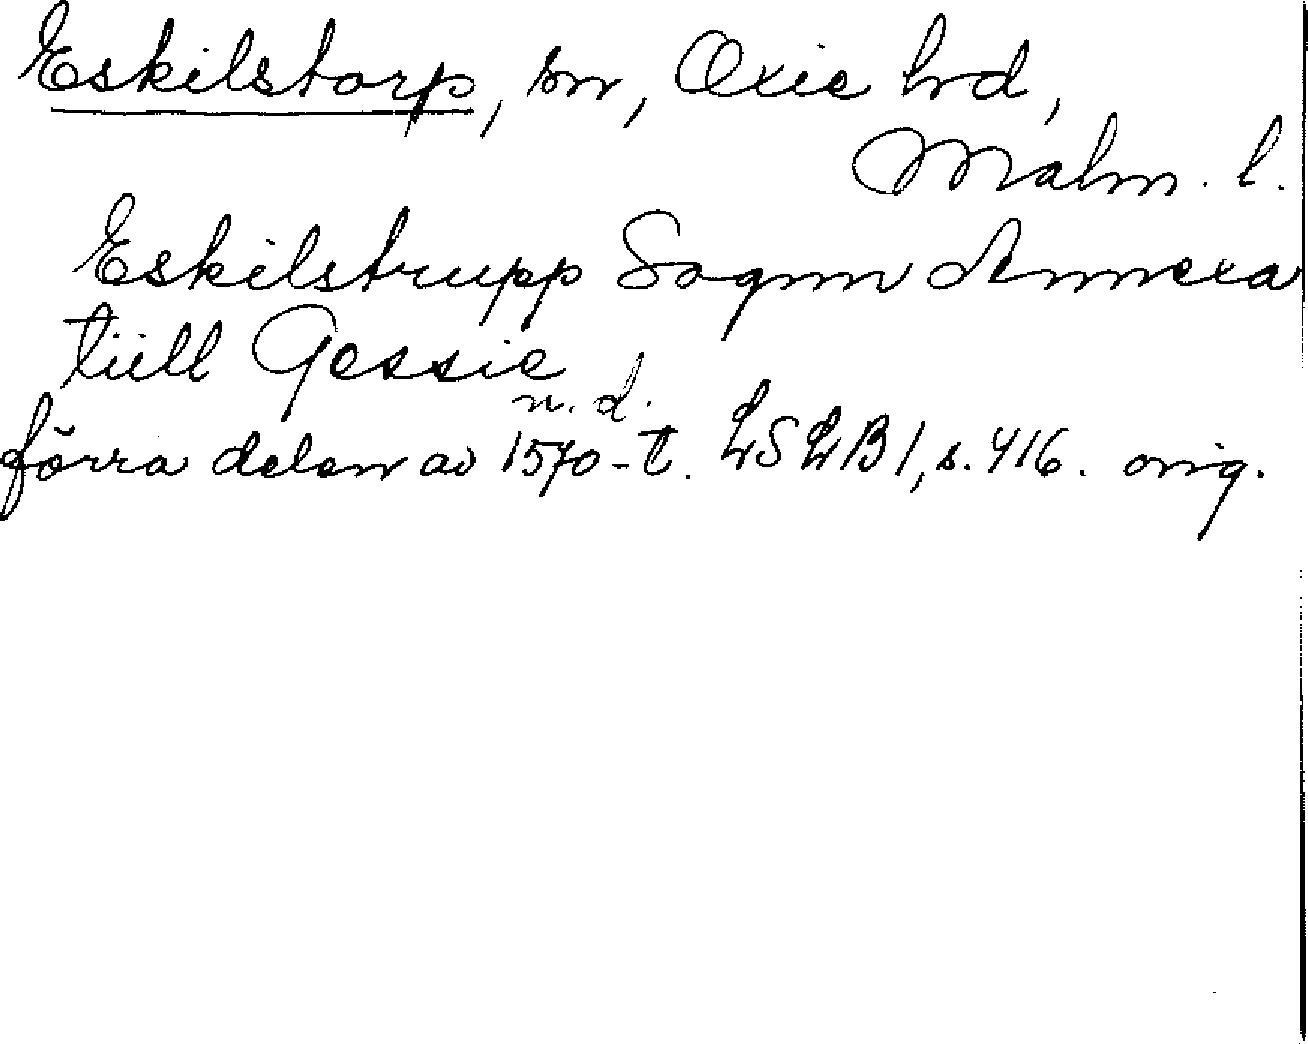 Eskilstorp, sn, Oxie hd,
Malm. l.
Eskilstrupp Sognn Annexa
tiill Gessie
n. d.
förra delen av 1570-t. LSLB 1, s. 416. orig.